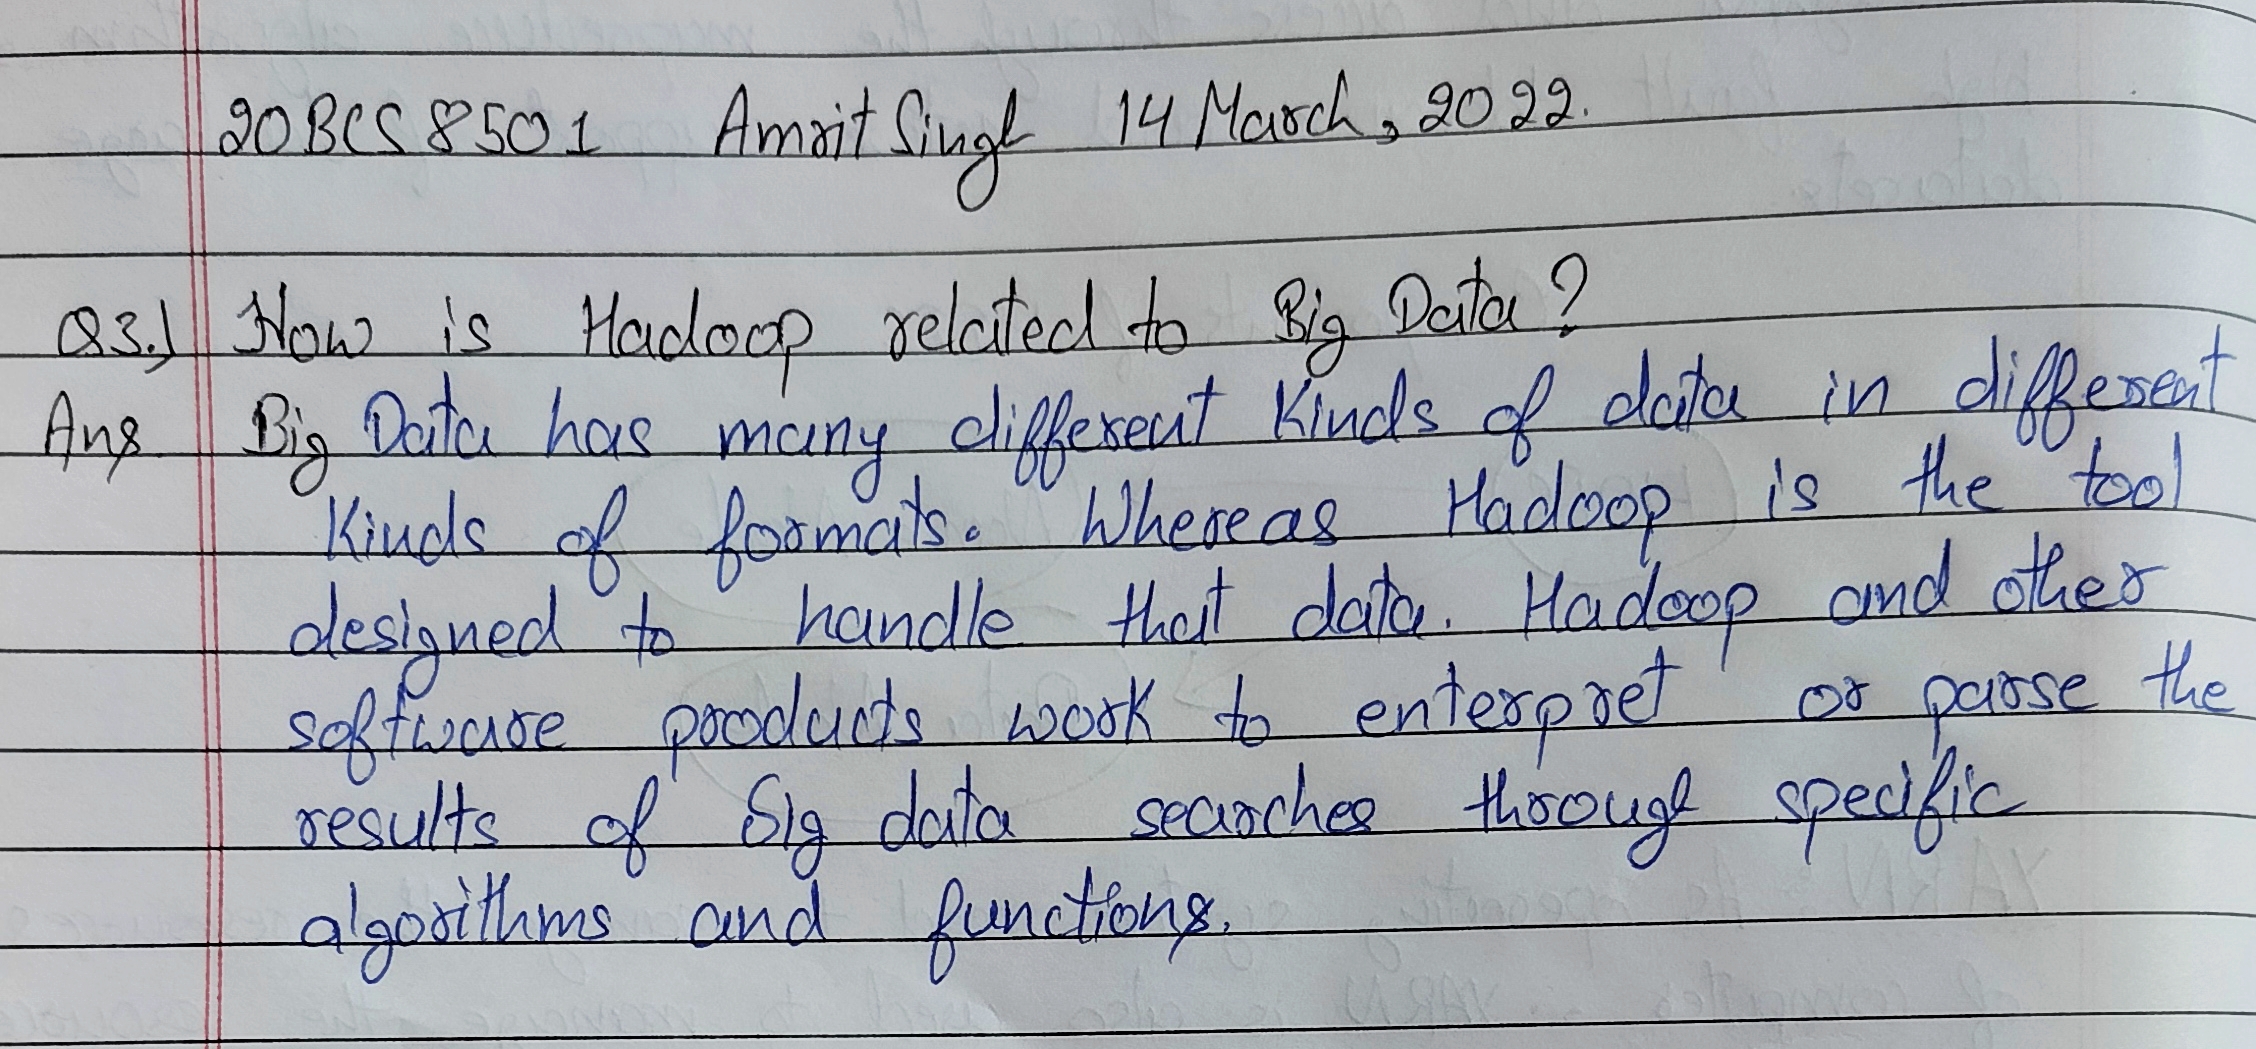 20BCS8501 Amrit Singh 14 March, 2022.
Q3.) How is Hadoop related to Big Data?
Ans Big Data has many different kinds of data in different
kinds of formats. Whereas Hadoop is the tool
designed to handle that data. Hadoop and other
software products work to enterpret or parse the
results of big data searches through specific
algorithms and functions.